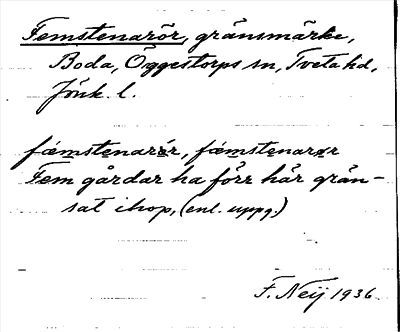 Femstenarör, gränsmärke,
Boda, Öggestorps sn, Tveta hd,
Jönk. l.
fæmstenarør, fæmstenarør
Fem gårdar ha förr här grän-
sat ihop, (enl. uppg.)
F. Neij 1936.